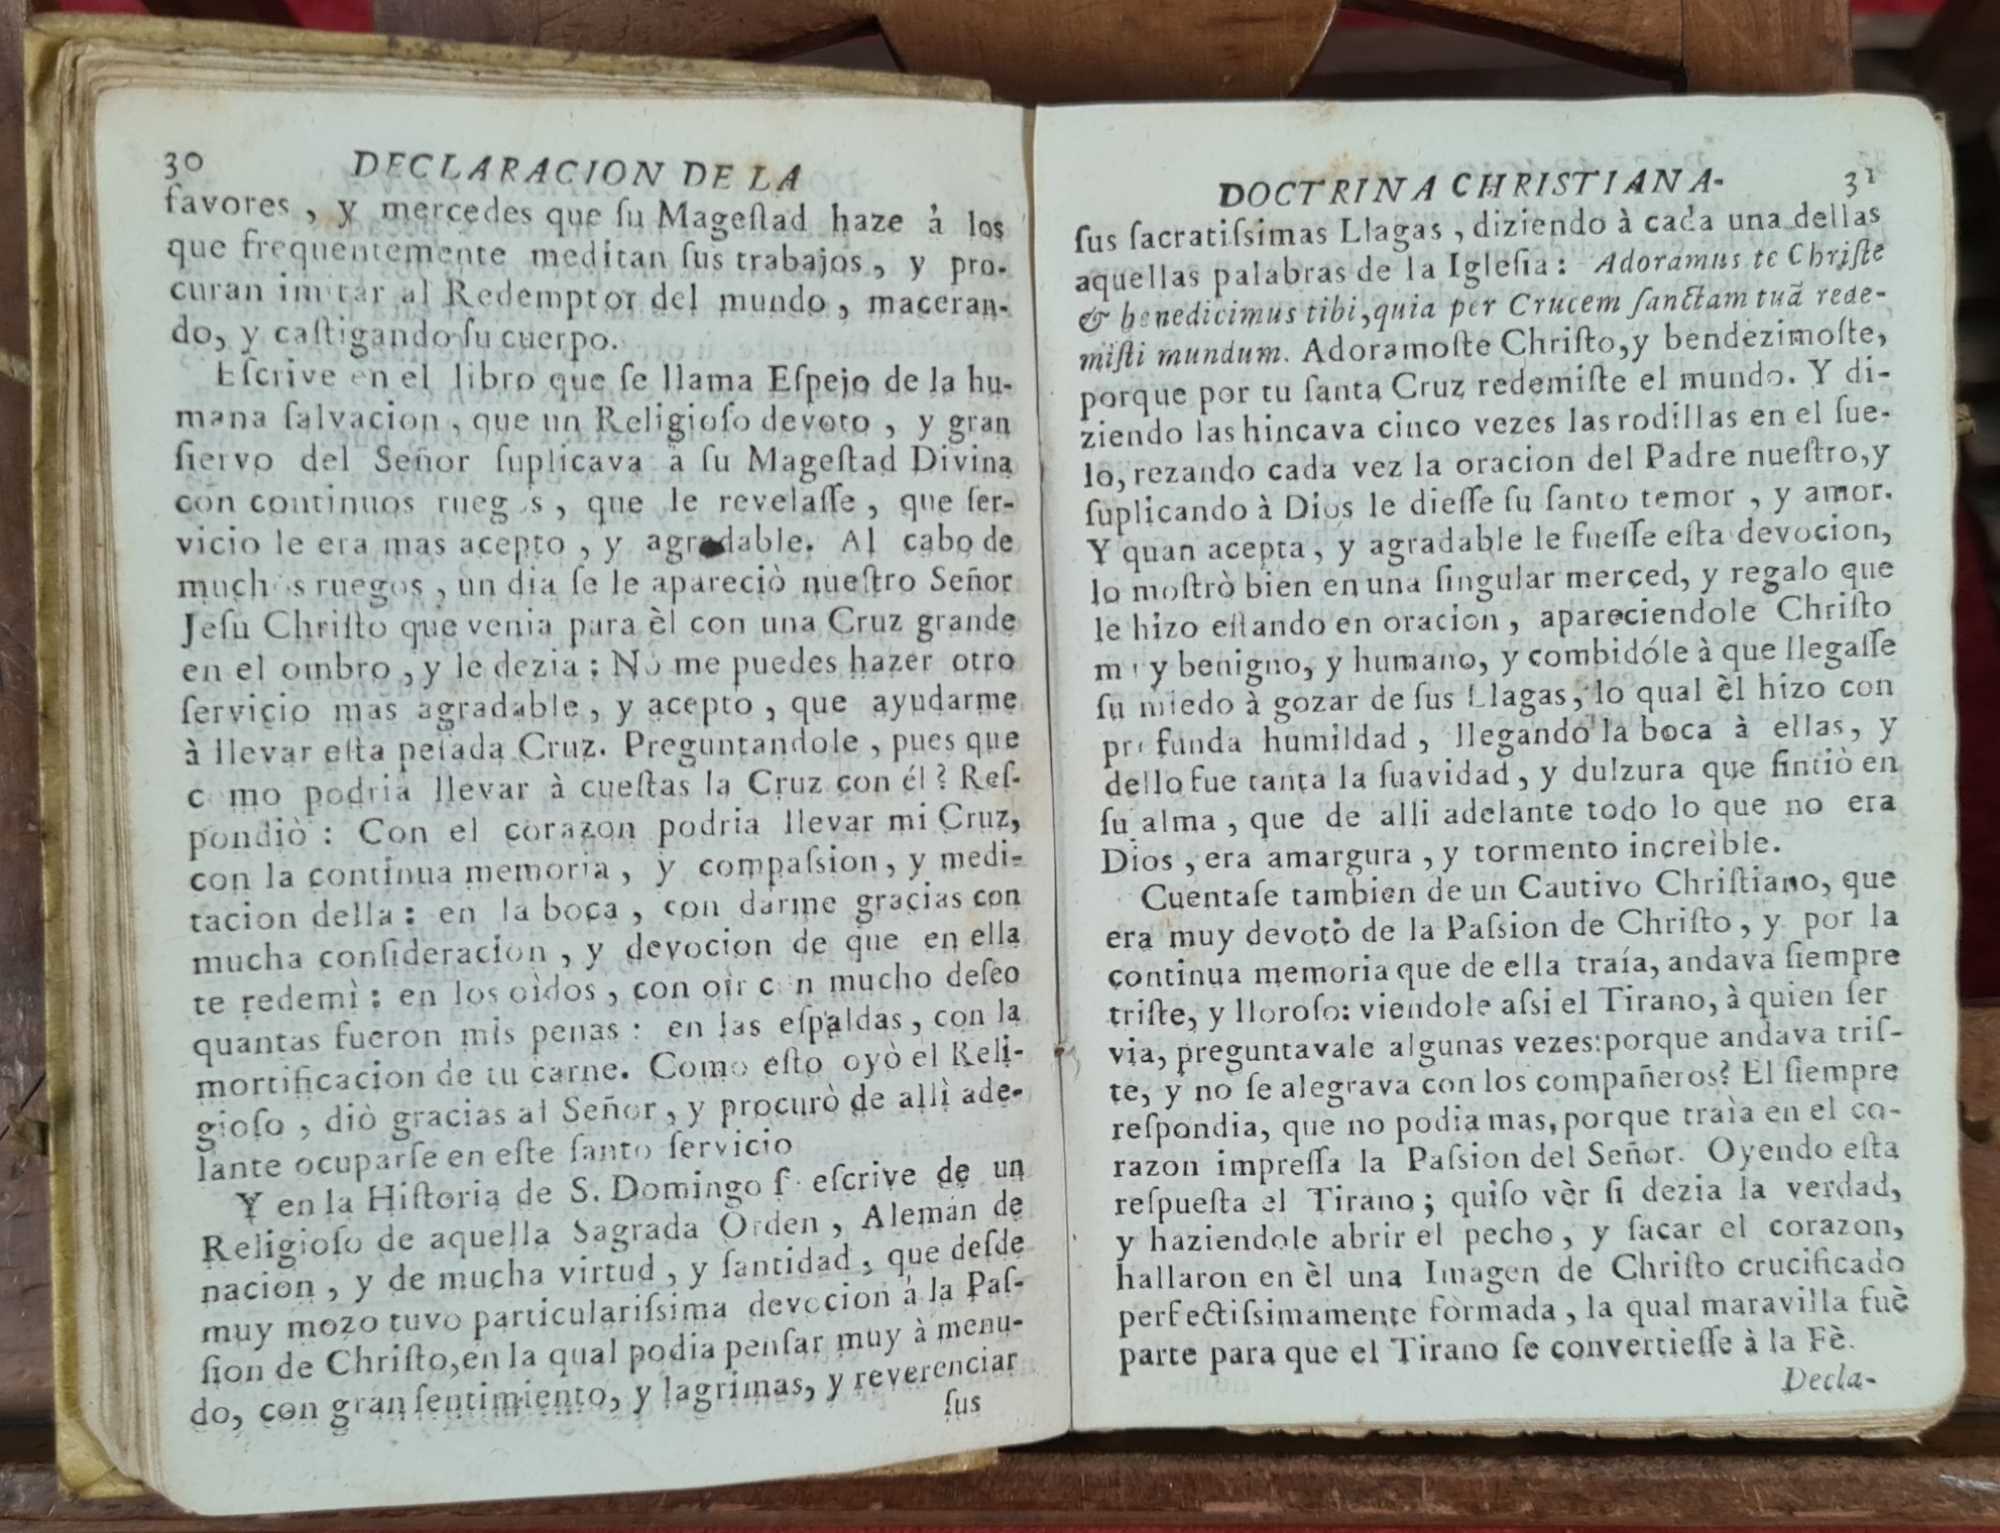 30 DECLARACION DE LA
favores, y mercedes que ſu Mageſtad haze à los
que frequentemente meditan ſus trabajos, y pro-
curan imitar al Redemptor del mundo, maceran-
do, y caſtigando ſu cuerpo.
Eſcrive en el libro que ſe llama Eſpejo de la hu-
mana ſalvacion, que un Religioſo devoto, y gran
ſiervo del Señor ſuplicava à ſu Mageſtad Divina
con continuos ruegos, que le revelaſſe, que ſer-
vicio le era mas acepto, y agradable. Al cabo de
muchos ruegos, un dia ſe le apareciò nueſtro Señor
Jeſu Chriſto que venia para èl con una Cruz grande
en el ombro, y le dezia: No me puedes hazer otro
ſervicio mas agradable, y acepto, que ayudarme
à llevar eſta peſada Cruz. Preguntandole, pues que
como podria llevar à cueſtas la Cruz con él? Reſ-
pondiò: Con el corazon podria llevar mi Cruz,
con la continua memoria, y compaſsion, y medi-
tacion della: en la boca, con darme gracias con
mucha conſideracion, y devocion de que en ella
te redemì: en los oìdos, con oìr con mucho deſeo
quantas fueron mis penas: en las eſpaldas, con la
mortificacion de tu carne. Como eſto oyò el Reli-
gioſo, diò gracias al Señor, y procurò de allì ade-
lante ocuparſe en eſte ſanto ſervicio
Y en la Hiſtoria de S. Domingo ſe eſcrive de un
Religioſo de aquella Sagrada Orden, Alemán de
nacion, y de mucha virtud, y ſantidad, que deſde
muy mozo tuvo particulariſsima devocion à la Paſ-
ſion de Chriſto, en la qual podia penſar muy à menu-
do, con gran ſentimiento, y lagrimas, y reverenciar
ſus
DOCTRINA CHRISTIANA. 31
ſus ſacratiſsimas Llagas, diziendo à cada una dellas
aquellas palabras de la Igleſia: Adoramus te Chriſte
& benedicimus tibi, quia per Crucem ſanctam tuã rede-
miſti mundum. Adoramoſte Chriſto, y bendezimoſte,
porque por tu ſanta Cruz redemiſte el mundo. Y di-
ziendo las hincava cinco vezes las rodillas en el ſue-
lo, rezando cada vez la oracion del Padre nueſtro, y
ſuplicando à Dios le dieſſe ſu ſanto temor, y amor.
Y quan acepta, y agradable le fueſſe eſta devocion,
lo moſtrò bien en una ſingular merced, y regalo que
le hizo eſtando en oracion, apareciendole Chriſto
muy benigno, y humano, y combidóle à que llegaſſe
ſu miedo à gozar de ſus Llagas, lo qual èl hizo con
profunda humildad, llegando la boca à ellas, y
dello fue tanta la ſuavidad, y dulzura que ſintiò en
ſu alma, que de alli adelante todo lo que no era
Dios, era amargura, y tormento increìble.
Cuentaſe tambien de un Cautivo Chriſtiano, que
era muy devoto de la Paſsion de Chriſto, y por la
continua memoria que de ella traía, andava ſiempre
triſte, y lloroſo: viendole aſsi el Tirano, à quien ſer
via, preguntavale algunas vezes: porque andava triſ-
te, y no ſe alegrava con los compañeros? El ſiempre
reſpondia, que no podia mas, porque traìa en el co-
razon impreſſa la Paſsion del Señor. Oyendo eſta
reſpueſta el Tirano; quiſo vèr ſi dezia la verdad,
y haziendole abrir el pecho, y ſacar el corazon,
hallaron en èl una Imagen de Chriſto crucificado
perfectiſsimamente formada, la qual maravilla fuè
parte para que el Tirano ſe convertieſſe à la Fè.
Decla-